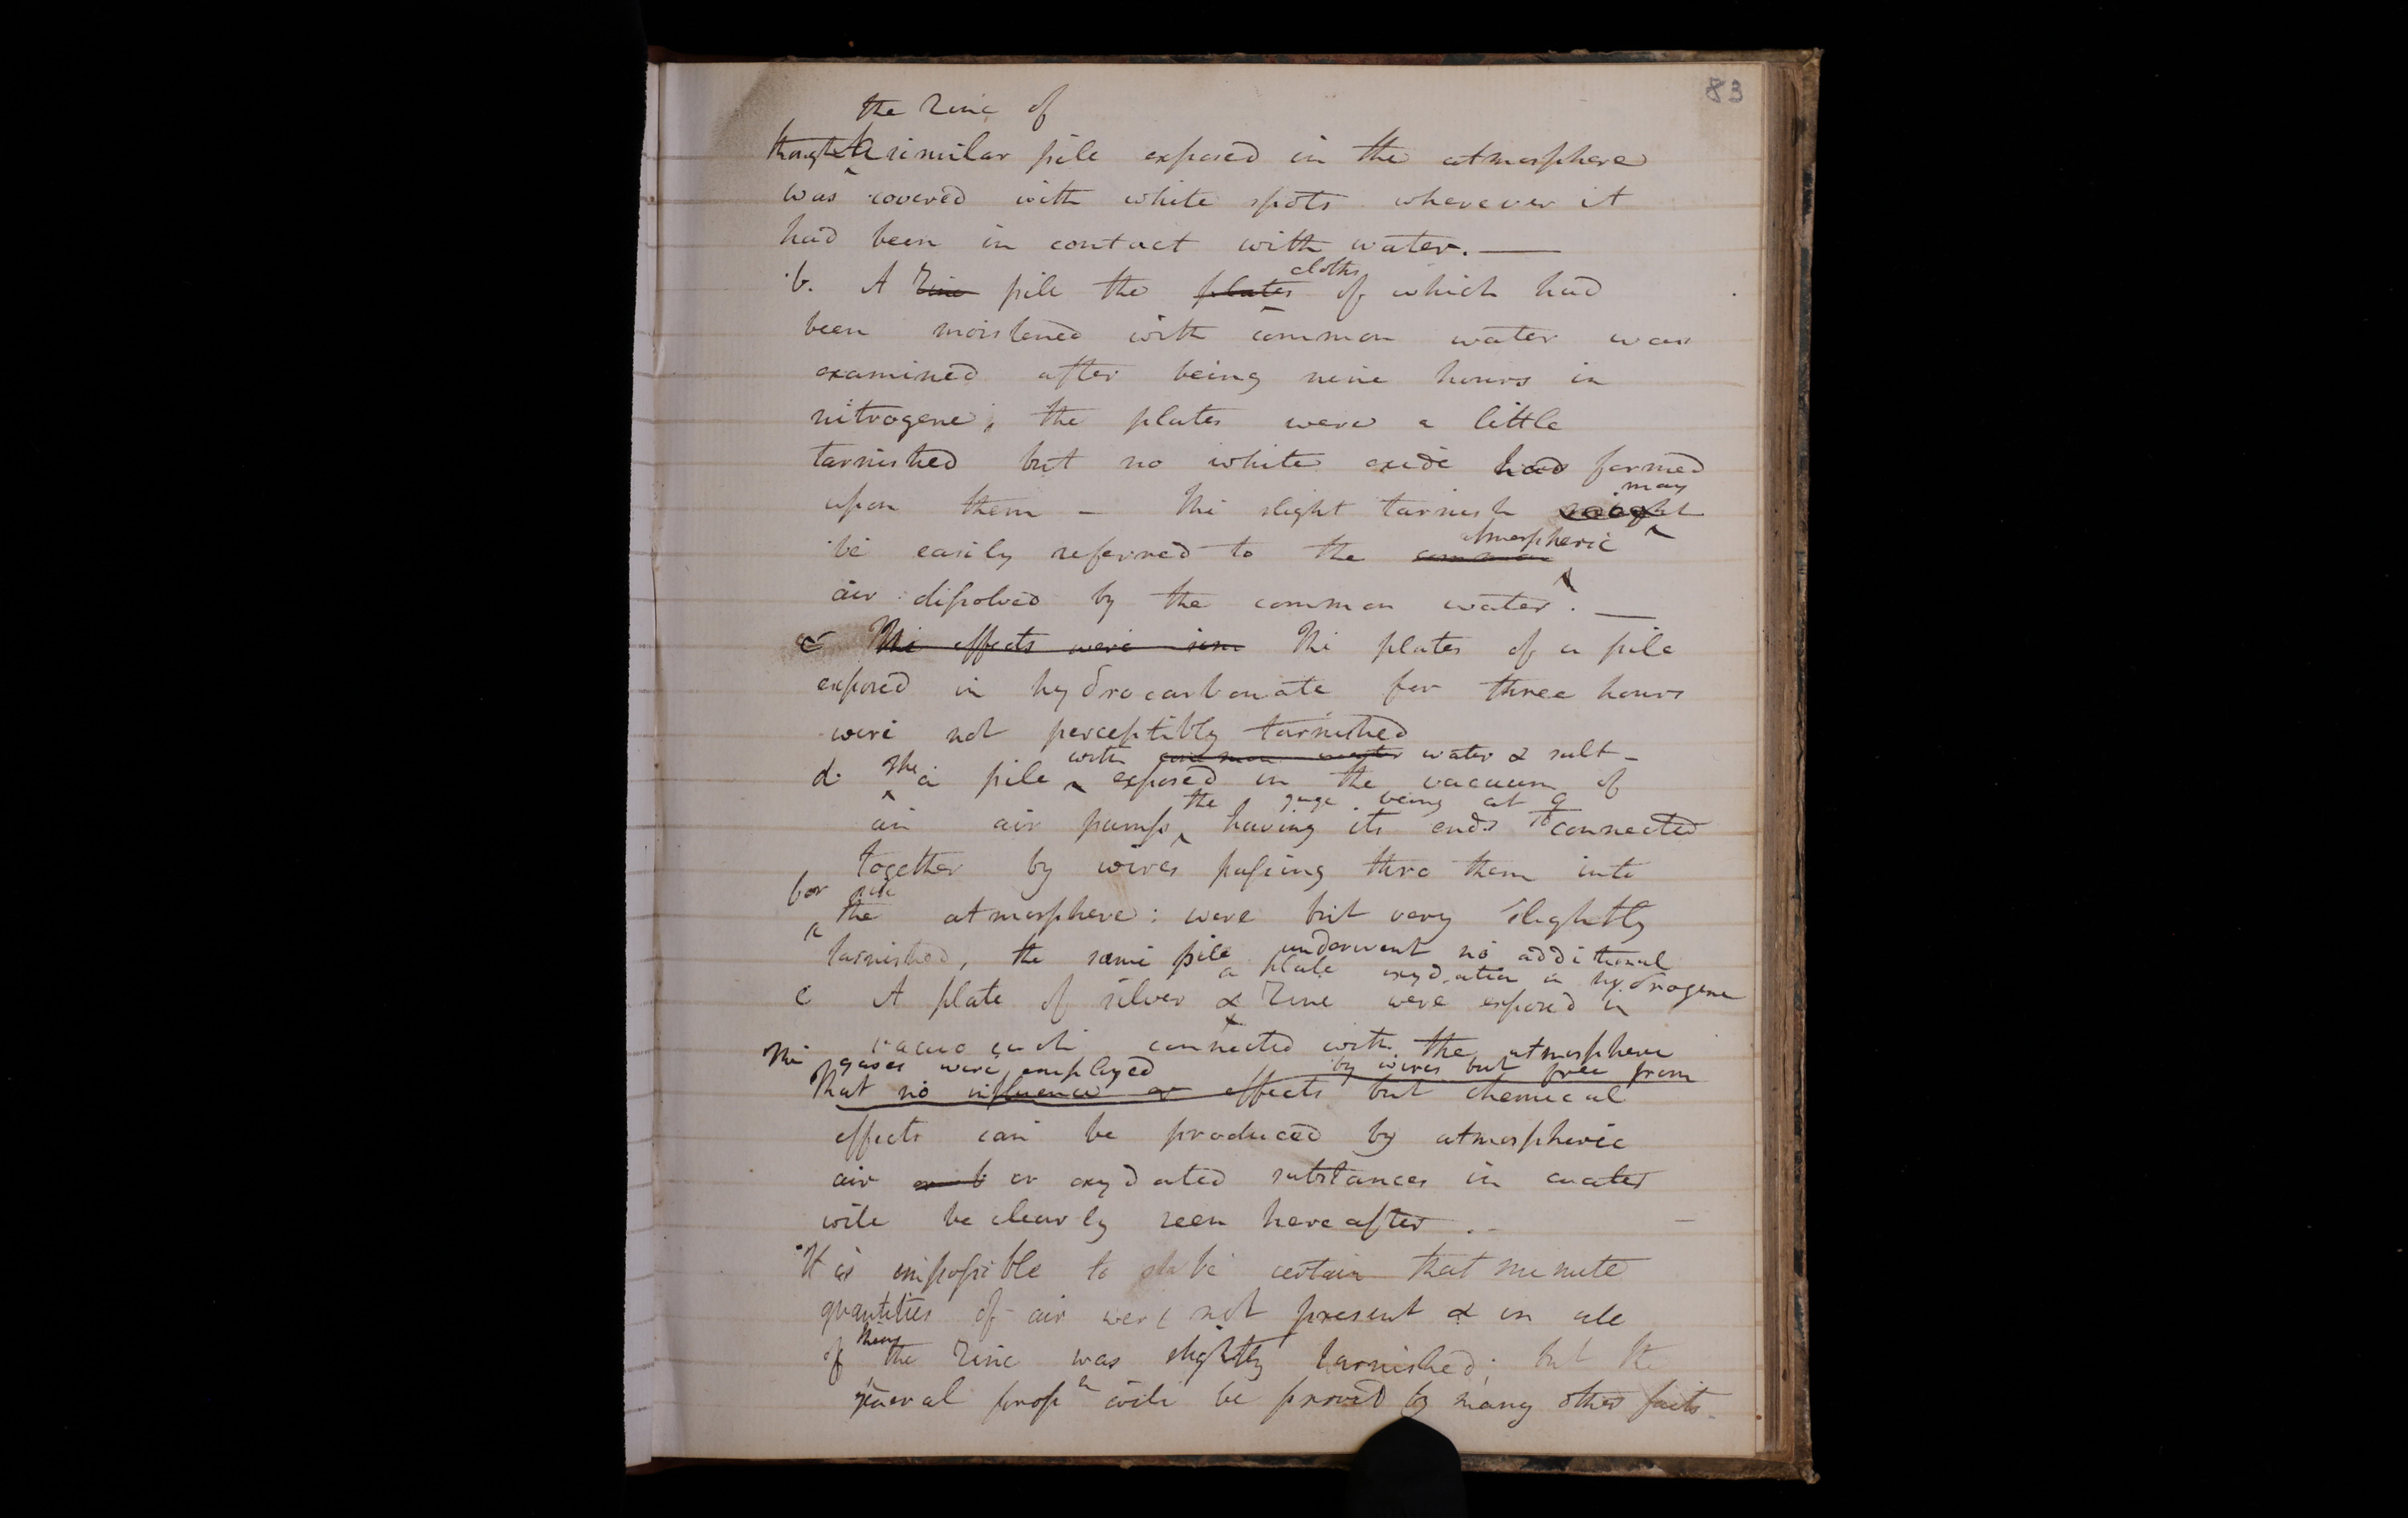 83
the Zinc of
though A similar pile exposed in the atmosphere
was covered with white spots wherever it
had been in contact with water. —
b. A Zinc pile the plates cloths of which had
been moistened with common water was
examined after being nine hours in
nitrogene; the plates were a little
tarnished but no white oxide had formed
upon them – The slight tarnish might may
be easily referred to the common atmospheric
air dissolved by the common water. —
c The effects were sim The plates of a pile
exposed in hydrocarbonate for three hours
were not perceptibly tarnished
with common water water & salt –
d. The a pile exposed in the vacuum of
the guage being at
an air pump having its ends connected
together by wires passing thro them into
for
the atmosphere: were but very slightly
tarnished, the same pile underwent no additional
oxydation in hydrogene
e A plate of silver & a plate Zinc were exposed in
vacuo each connected with the atmosphere
by wires but free from
The gases were employed
That no influence or effects but chemical
effects can be produced by atmospheric
air or b or oxydated substances in water
will be clearly seen hereafter. –
It is impossible to be certain that minute
quantities of air were not present & in all
of them the Zinc was slightly tarnished; but the
general propn will be proved by many other facts.